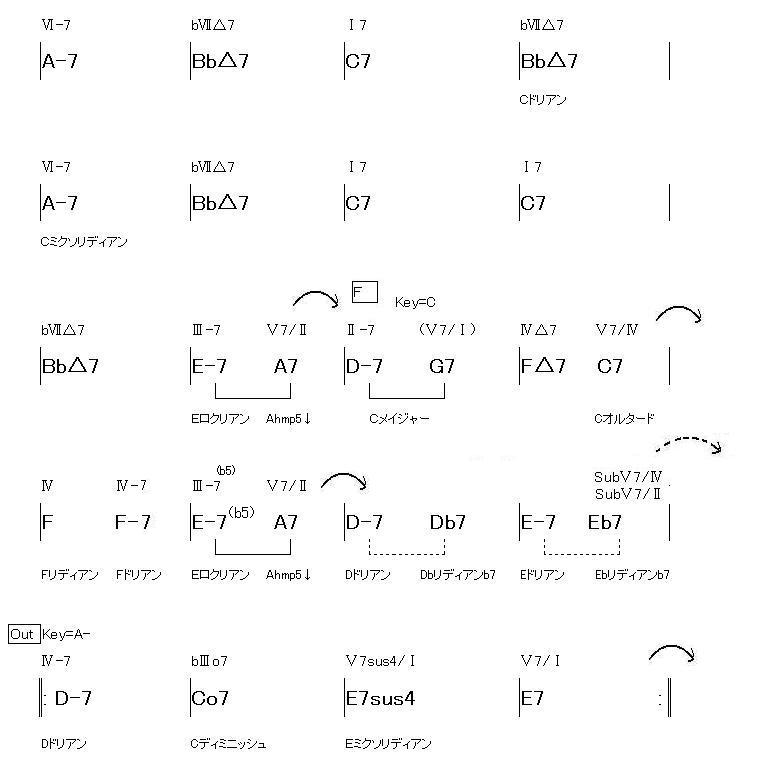 Ⅵ-7 bⅦ△7 Ⅰ7 bⅦ△7
A-7 Bb△7 C7 Bb△7
Cドリアン
Ⅵ-7 bⅦ△7 Ⅰ7 Ⅰ7
A-7 Bb△7 C7 C7
Cミクソリディアン
F Key=C
bⅦ△7 Ⅲ-7 Ⅴ7/Ⅱ Ⅱ-7 (Ⅴ7/Ⅰ) Ⅳ△7 Ⅴ7/Ⅳ
Bb△7 E-7 A7 D-7 G7 F△7 C7
Eロクリアン Ahmp5↓ Cメイジャー Cオルタード
(b5) SubⅤ7/Ⅳ
Ⅳ Ⅳ-7 Ⅲ-7 Ⅴ7/Ⅱ SubⅤ7/Ⅱ
F F-7 E-7(b5) A7 D-7 Db7 E-7 Eb7
Fリディアン Fドリアン Eロクリアン Ahmp5↓ Dドリアン Dbリディアンb7 Eドリアン Ebリディアンb7
Out Key=A-
Ⅳ-7 bⅢo7 Ⅴ7sus4/Ⅰ Ⅴ7/Ⅰ
: D-7 Co7 E7sus4 E7 :
Dドリアン Cディミニッシュ Eミクソリディアン